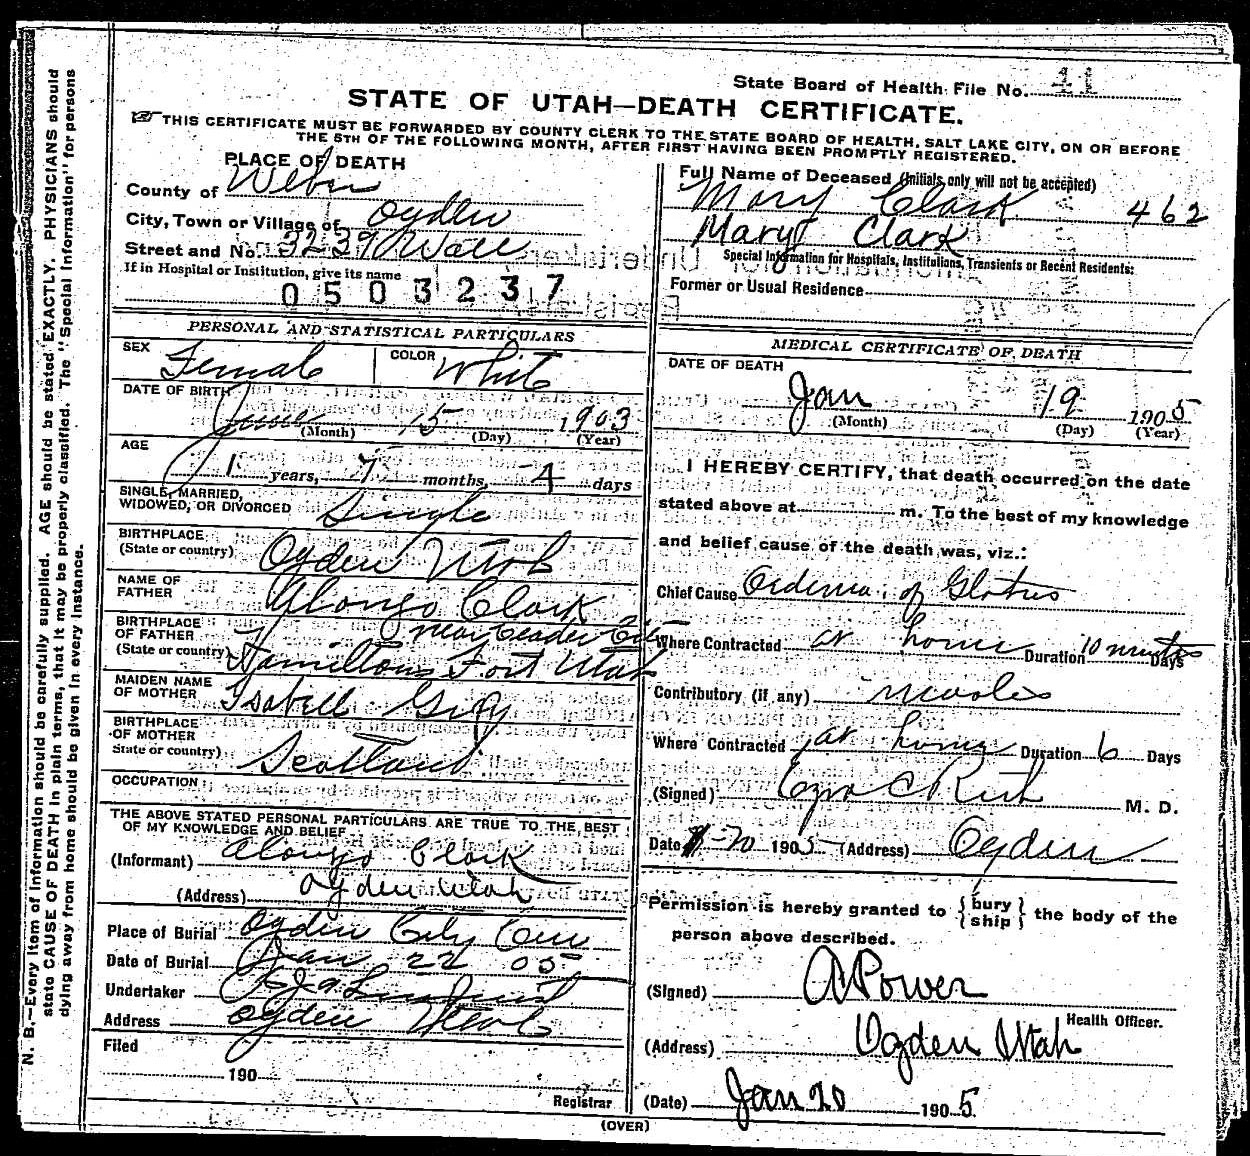 State Board of Health File No. 11
STATE OF UTAH—DEATH CERTIFICATE.
THIS CERTIFICATE MUST BE FORWARDED BY COUNTY CLERK TO THE STATE BOARD OF HEALTH, SALT LAKE CITY, ON OR BEFORE
THE 5TH OF THE FOLLOWING MONTH, AFTER FIRST HAVING BEEN PROMPTLY REGISTERED.
PLACE OF DEATH
County of Weber
City, Town or Village of Ogden
Street and No. 3239 Wall
If in Hospital or Institution, give its name
0503237
PERSONAL AND STATISTICAL PARTICULARS
SEX Female COLOR White
DATE OF BIRTH
June 15 1903
(Month) (Day) (Year)
AGE
1 years, 7 months, 4 days
SINGLE, MARRIED,
WIDOWED, OR DIVORCED Single
BIRTHPLACE
(State or country) Ogden Utah
NAME OF
FATHER Alonzo Clark
BIRTHPLACE
OF FATHER near Ceader City
(State or country) Hamiltons Fort Utah
MAIDEN NAME
OF MOTHER Isabell
BIRTHPLACE
OF MOTHER
State or country) Scotland
OCCUPATION
THE ABOVE STATED PERSONAL PARTICULARS ARE TRUE TO THE BEST
OF MY KNOWLEDGE AND BELIEF
(Informant) Alonzo Clark
(Address) Ogden Utah
Place of Burial Ogden City Cem
Date of Burial Jan 22 05
Undertaker
Address Ogden Utah
Filed
190
Registrar
Full Name of Deceased (Initials only will not be accepted)
Mary Clark 462
Mary Clark
Special Information for Hospitals, Institutions, Transients or Recent Residents:
Former or Usual Residence
MEDICAL CERTIFICATE OF DEATH
DATE OF DEATH
Jan 19 1905
(Month) (Day) (Year)
I HEREBY CERTIFY, that death occurred on the date
stated above at m. To the best of my knowledge
and belief cause of the death was, viz.:
Chief Cause Oedema of Glotus
Where Contracted at home Duration 10 minutes Days
Contributory (if any) measles
Where Contracted at home Duration 6 Days
(Signed) Ezra C Rich M. D.
Date 1-20 1905 (Address) Ogden
Permission is hereby granted to { bury ship } the body of the
person above described.
(Signed) A Power
Health Officer.
(Address) Ogden Utah
(Date) Jan 20 1905.
(OVER)
N. B.—Every item of information should be carefully supplied. AGE should be stated EXACTLY. PHYSICIANS should
state CAUSE OF DEATH in plain terms, that it may be properly classified. The "Special Information" for persons
dying away from home should be given in every instance.